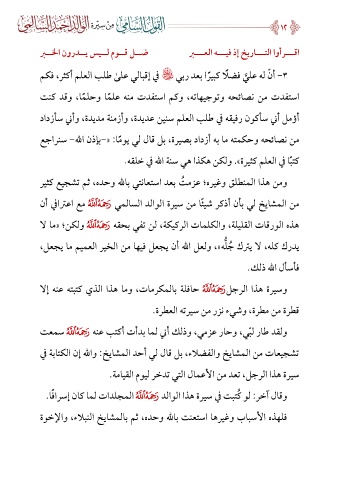 ١٢ القول السامي من سيرة الوالد أحمد السالمي
اقـرأوا التـاريخ إذ فيـه العبـر ضـل قـوم ليـس يـدرون الخبر
٣- أنّ له عليّ فضلًا كبيرًا بعد ربي ﷻ في إقبالي على طلب العلم أكثر، فكم
استفدت من نصائحه وتوجيهاته، وكم استفدت منه علمًا وحلمًا، وقد كنت
أؤمل أني سأكون رفيقه في طلب العلم سنين عديدة، وأزمنة مديدة، وأني سأزداد
من نصائحه وحكمته ما به أزداد بصيرة، بل قال لي يومًا: «-بإذن الله- سنراجع
كتبًا في العلم كثيرة». ولكن هكذا هي سنة الله في خلقه.
ومن هذا المنطلق وغيره؛ عزمتُ بعد استعانتي بالله وحده، ثم تشجيع كثير
من المشايخ لي بأن أذكر شيئًا من سيرة الوالد السالمي رَحِمَهُ اللَّهُ مع اعترافي أن
هذه الورقات القليلة، والكلمات الركيكة، لن تفي بحقه رَحِمَهُ اللَّهُ ولكن؛ «ما لا
يدرك كله، لا يترك جُلُّه»، ولعل الله أن يجعل فيها من الخير العميم ما يجعل،
فأسأل الله ذلك.
وسيرة هذا الرجل رَحِمَهُ اللَّهُ حافلة بالمكرمات، وما هذا الذي كتبته عنه إلا
قطرة من مطرة، وشيء نزر من سيرته العطرة.
ولقد طار لبّي، وحار عزمي، وذلك أني لما بدأت أكتب عنه رَحِمَهُ اللَّهُ سمعت
تشجيعات من المشايخ والفضلاء، بل قال لي أحد المشايخ: والله إن الكتابة في
سيرة هذا الرجل، تعد من الأعمال التي تدخر ليوم القيامة.
وقال آخر: لو كُتبت في سيرة هذا الوالد رَحِمَهُ اللَّهُ المجلدات لما كان إسرافًا.
فلهذه الأسباب وغيرها استعنت بالله وحده، ثم بالمشايخ النبلاء، والإخوة